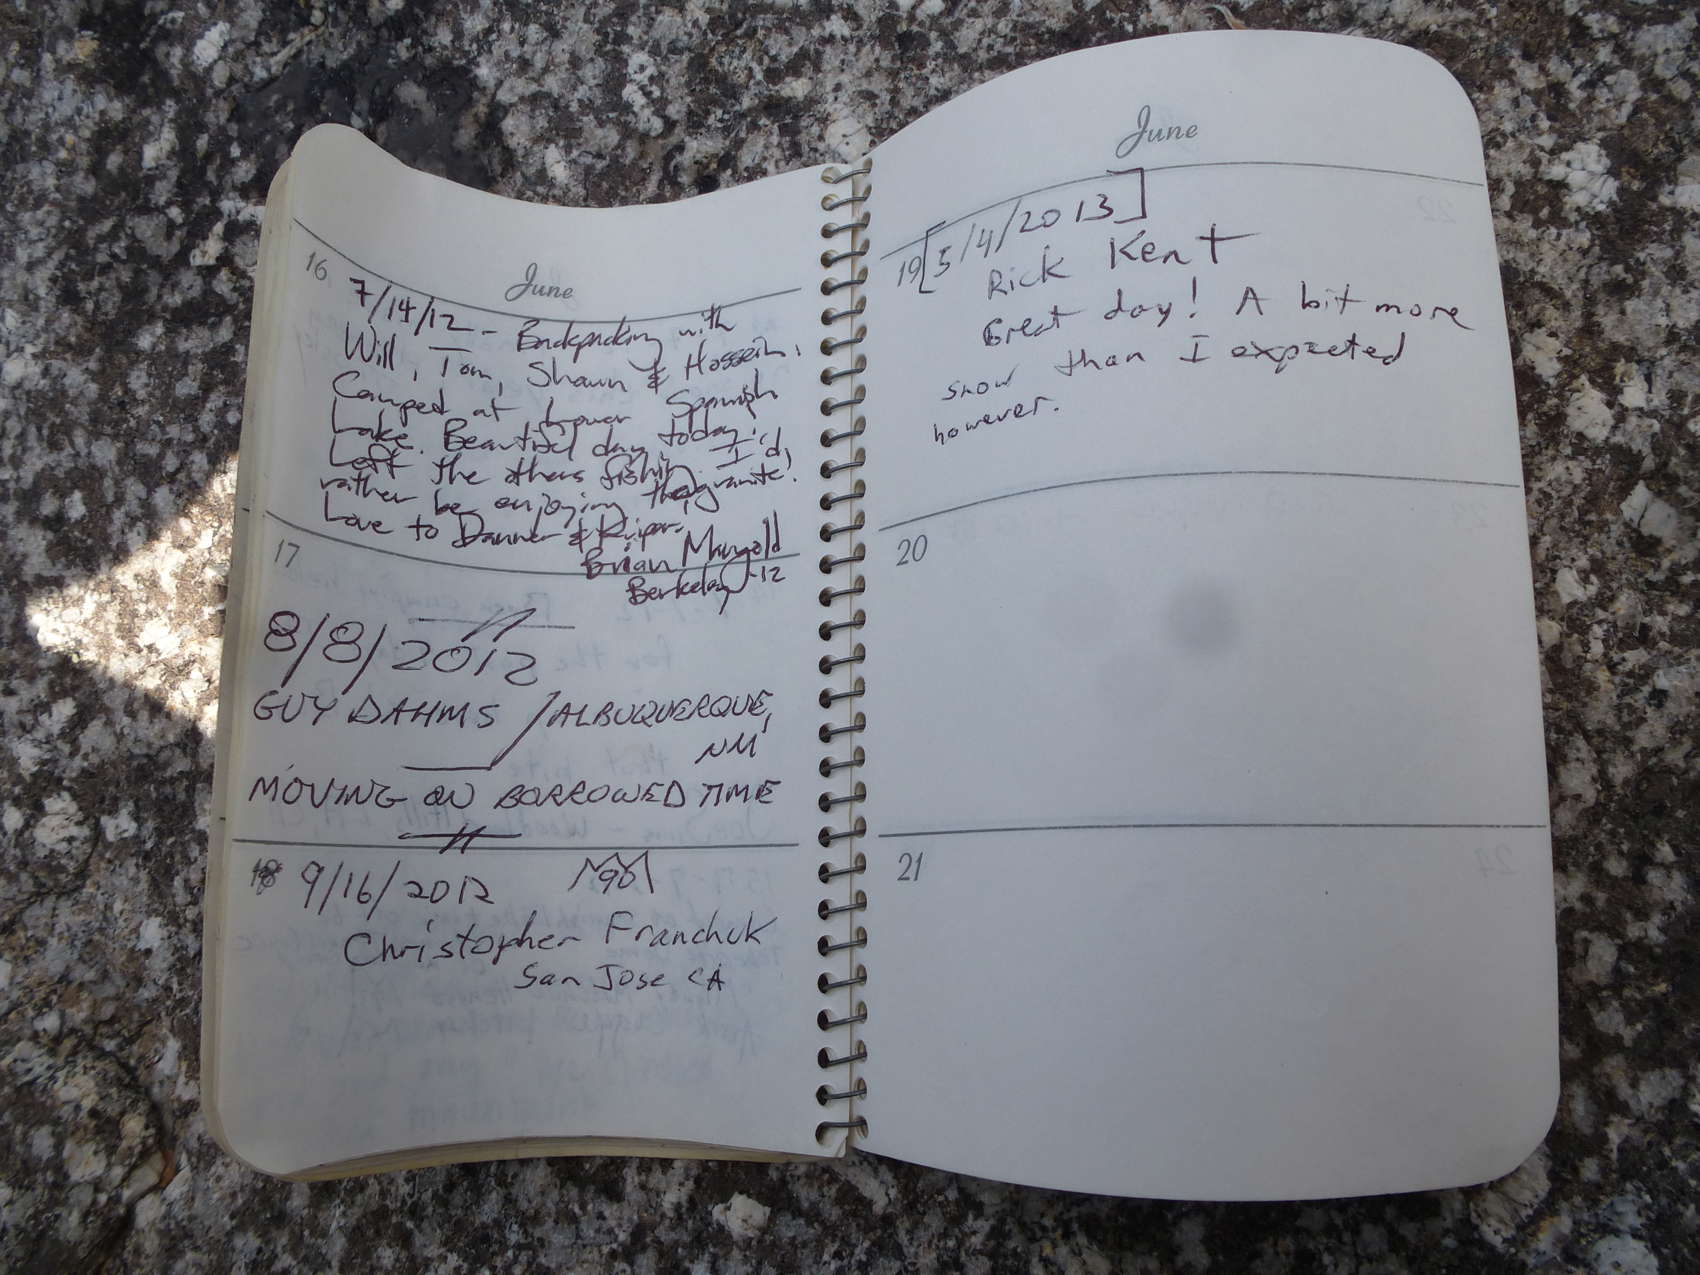 June
16
7/14/12 - Backpacking with
Will, Tom, Shawn & Hossein.
Camped at Lower Spanish
Lake. Beautiful day today.
Left the others fishing. I'd
rather be enjoying the granite!
Love to Danner &
Brian
Berkeley '12
17
8/8/2012
GUY DAHMS / ALBUQUERQUE,
NM
MOVING ON BORROWED TIME
18 9/16/2012
Christopher Franchuk
San Jose CA
June
19 [5/4/2013]
Rick Kent
Great day! A bit more
snow than I expected
however.
20
21